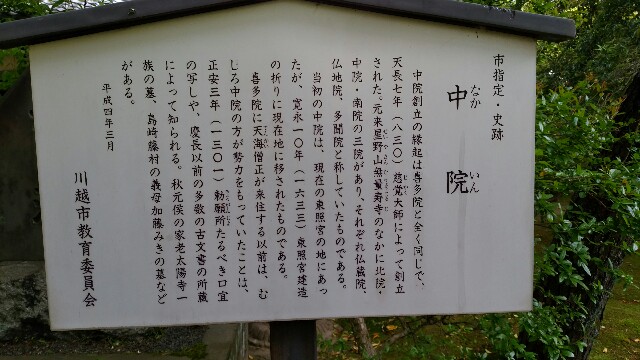 市指定・史跡
中院
なかいん
中院創立の縁起は喜多院と全く同じで、
天長七年（八三〇）慈覚大師によって創立
された。元来星野山無量寿寺のなかに北院・
中院・南院の三院があり、それぞれ仏蔵院、
仏地院、多聞院と称していたものである。
当初の中院は、現在の東照宮の地にあっ
たが、寛永一〇年（一六三三）東照宮建造
の折りに現在地に移されたものである。
喜多院に天海僧正が来住する以前は、む
しろ中院の方が勢力をもっていたことは、
正安三年（一三〇一）勅願所たるべき口宣
の写しや、慶長以前の多数の古文書の所蔵
によって知られる。秋元侯の家老太陽寺一
族の墓、島崎藤村の義母加藤みきの墓など
がある。
平成四年三月
川越市教育委員会